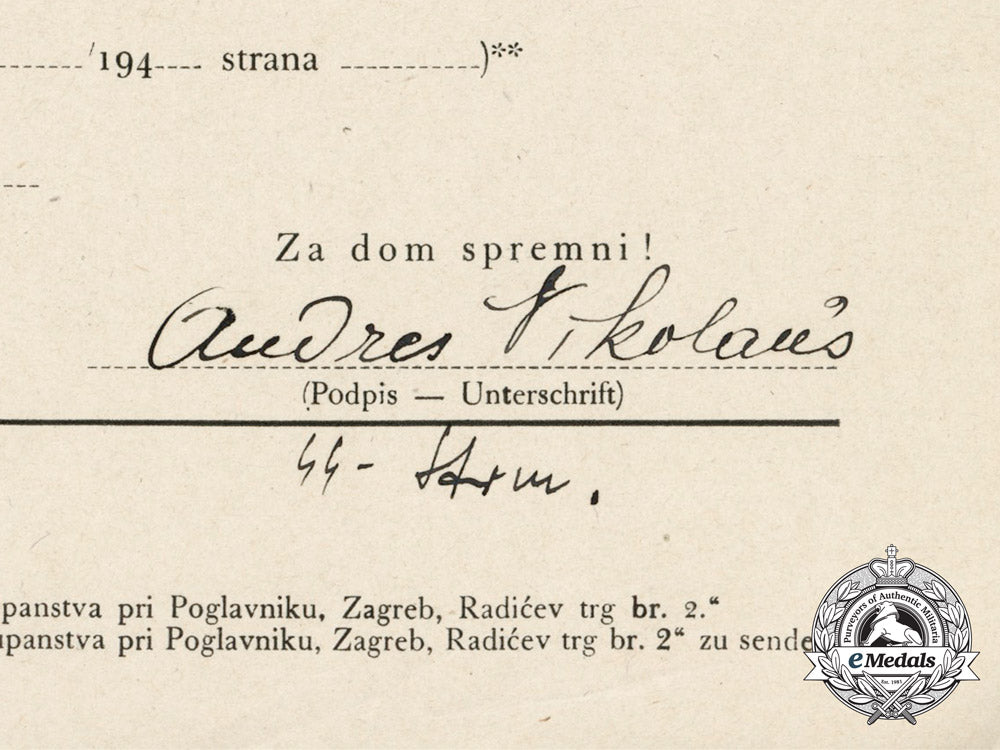 '194 strana )**
Za dom spremni!
Andres Nikolaus
(Podpis — Unterschrift)
SS- Strm.
panstva pri Poglavniku, Zagreb, Radićev trg br. 2.“
upanstva pri Poglavniku, Zagreb, Radićev trg br. 2“ zu sende
Purveyors of Authentic Militaria
eMedals
Est. 1981